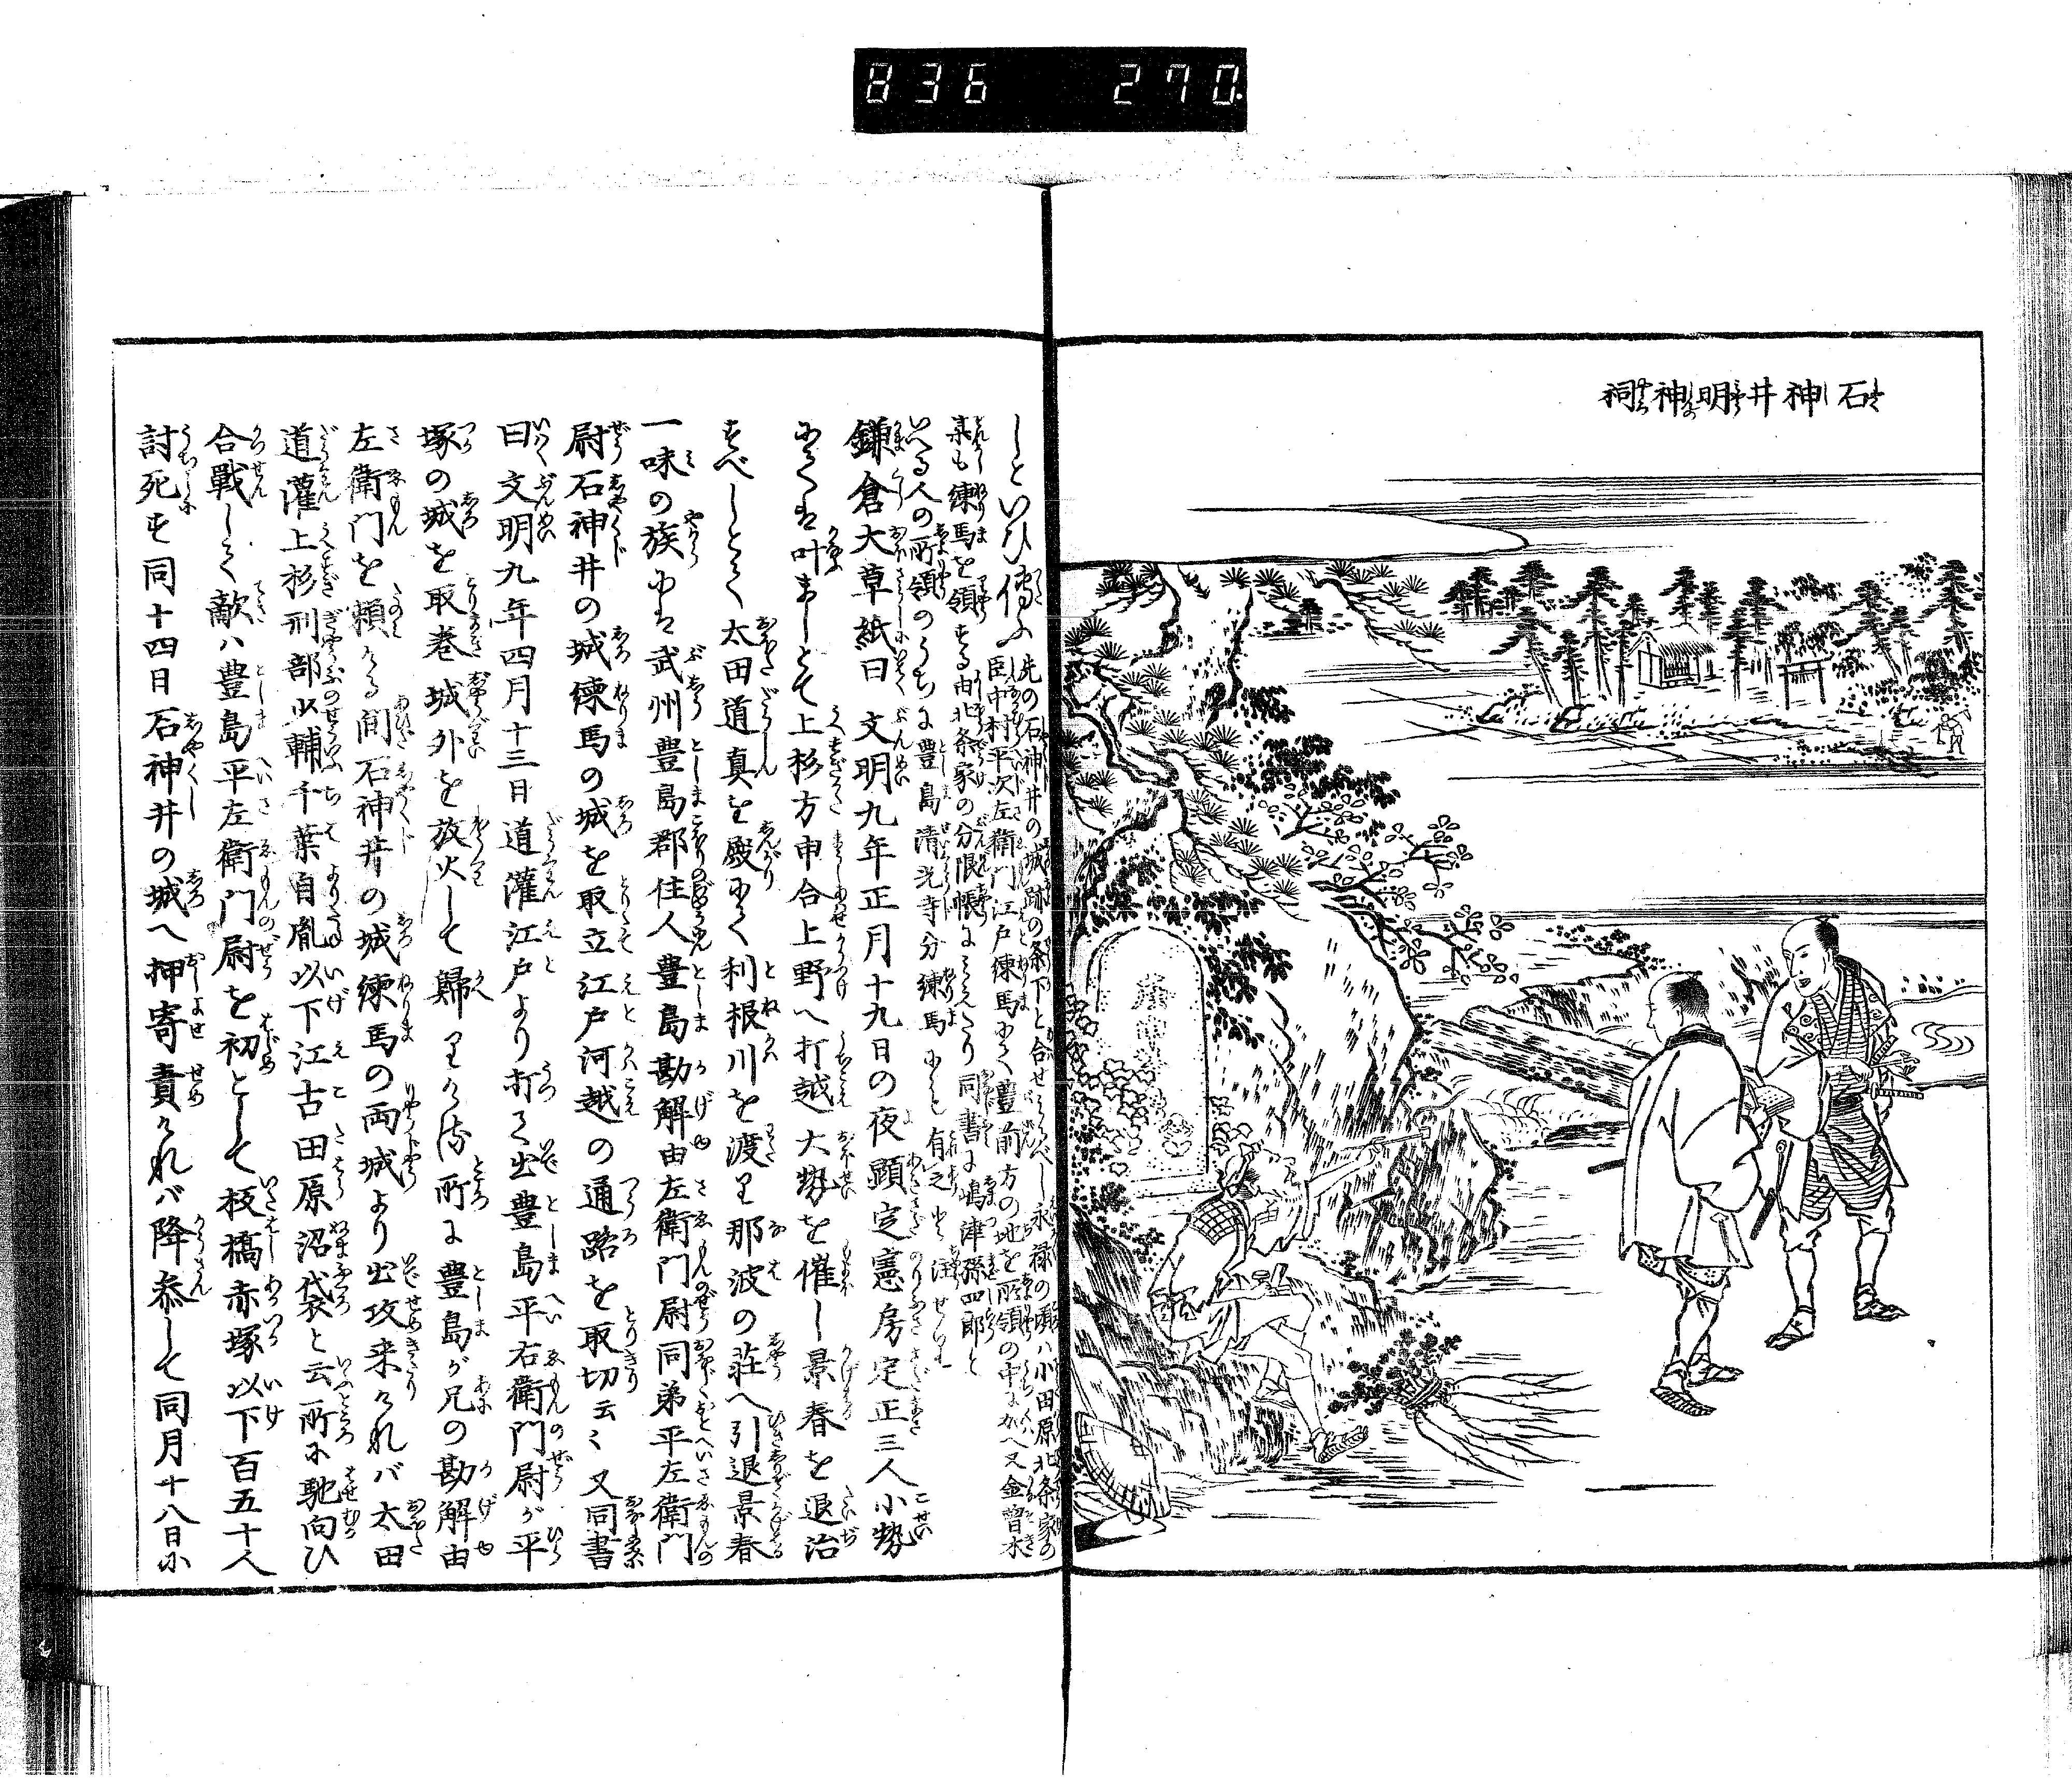 836 270
石神井明神祠
しといひ傳ふ
先の石神井の城跡の条下と合せみるべし永禄の頃ハ小田原北条家の
臣中村平次左衛門江戸練馬にて豊前方の地を所領の中にかへ又金曽木
某も練馬を領する由北条家の分限帳にみえたり同書に嶋津孫四郎と
いへる人の所領のうちに豊島清光寺分練馬にも有之と注せり
鎌倉大草紙曰文明九年正月十九日の夜顕定憲房定正三人小勢
にてハ叶ましとて上杉方申合上野へ打越大勢を催し景春を退治
すべしとて太田道真を殿にて利根川を渡り那波の荘へ引退景春
一味の族にハ武州豊島郡住人豊島勘解由左衛門尉同弟平左衛門
尉石神井の城練馬の城を取立江戸河越の通路を取切云々又同書
曰文明九年四月十三日道灌江戸より打て出豊島平右衛門尉が平
塚の城を取巻城外を放火して歸りける所に豊島が兄の勘解由
左衛門を頼ける間石神井の城練馬の両城より出攻来りけれバ太田
道灌上杉刑部少輔千葉自胤以下江古田原沼袋と云所に馳向ひ
合戰して敵ハ豊島平左衛門尉を初として板橋赤塚以下百五十人
討死す同十四日石神井の城へ押寄責けれバ降参して同月十八日に